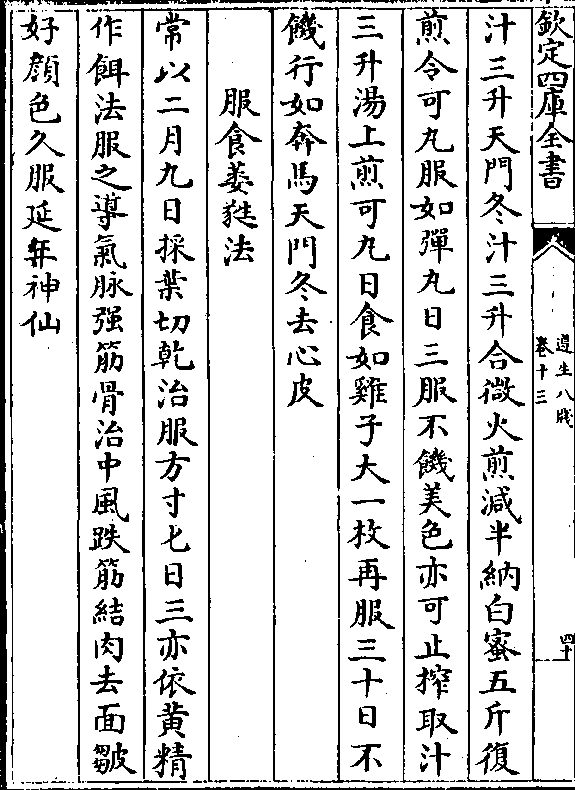 欽定四庫全書
遵生八牋
卷十三
四十
汁三升天門冬汁三升合微火煎減半納白蜜五斤復
煎令可丸服如彈丸日三服不饑美色亦可止搾取汁
三升湯上煎可丸日食如雞子大一枚再服三十日不
饑行如奔馬天門冬去心皮
服食萎甤法
常以二月九日採葉切乾治服方寸七日三亦依黄精
作餌法服之導氣脉强筋骨治中風跌筋結肉去面皺
好顔色久服延年神仙